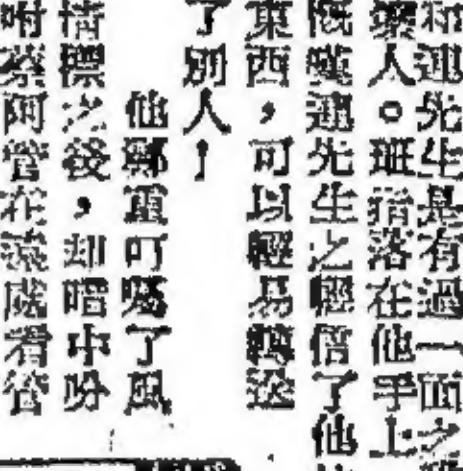 和連先生是有過一面之
壞人。班指落在他手上
慨嘆連先生之輕信了他
東西，可以輕易轉送
了別人」
他鄭重叮囑了風
情標之後，却暗中吩
咐蔡阿管在流成看管